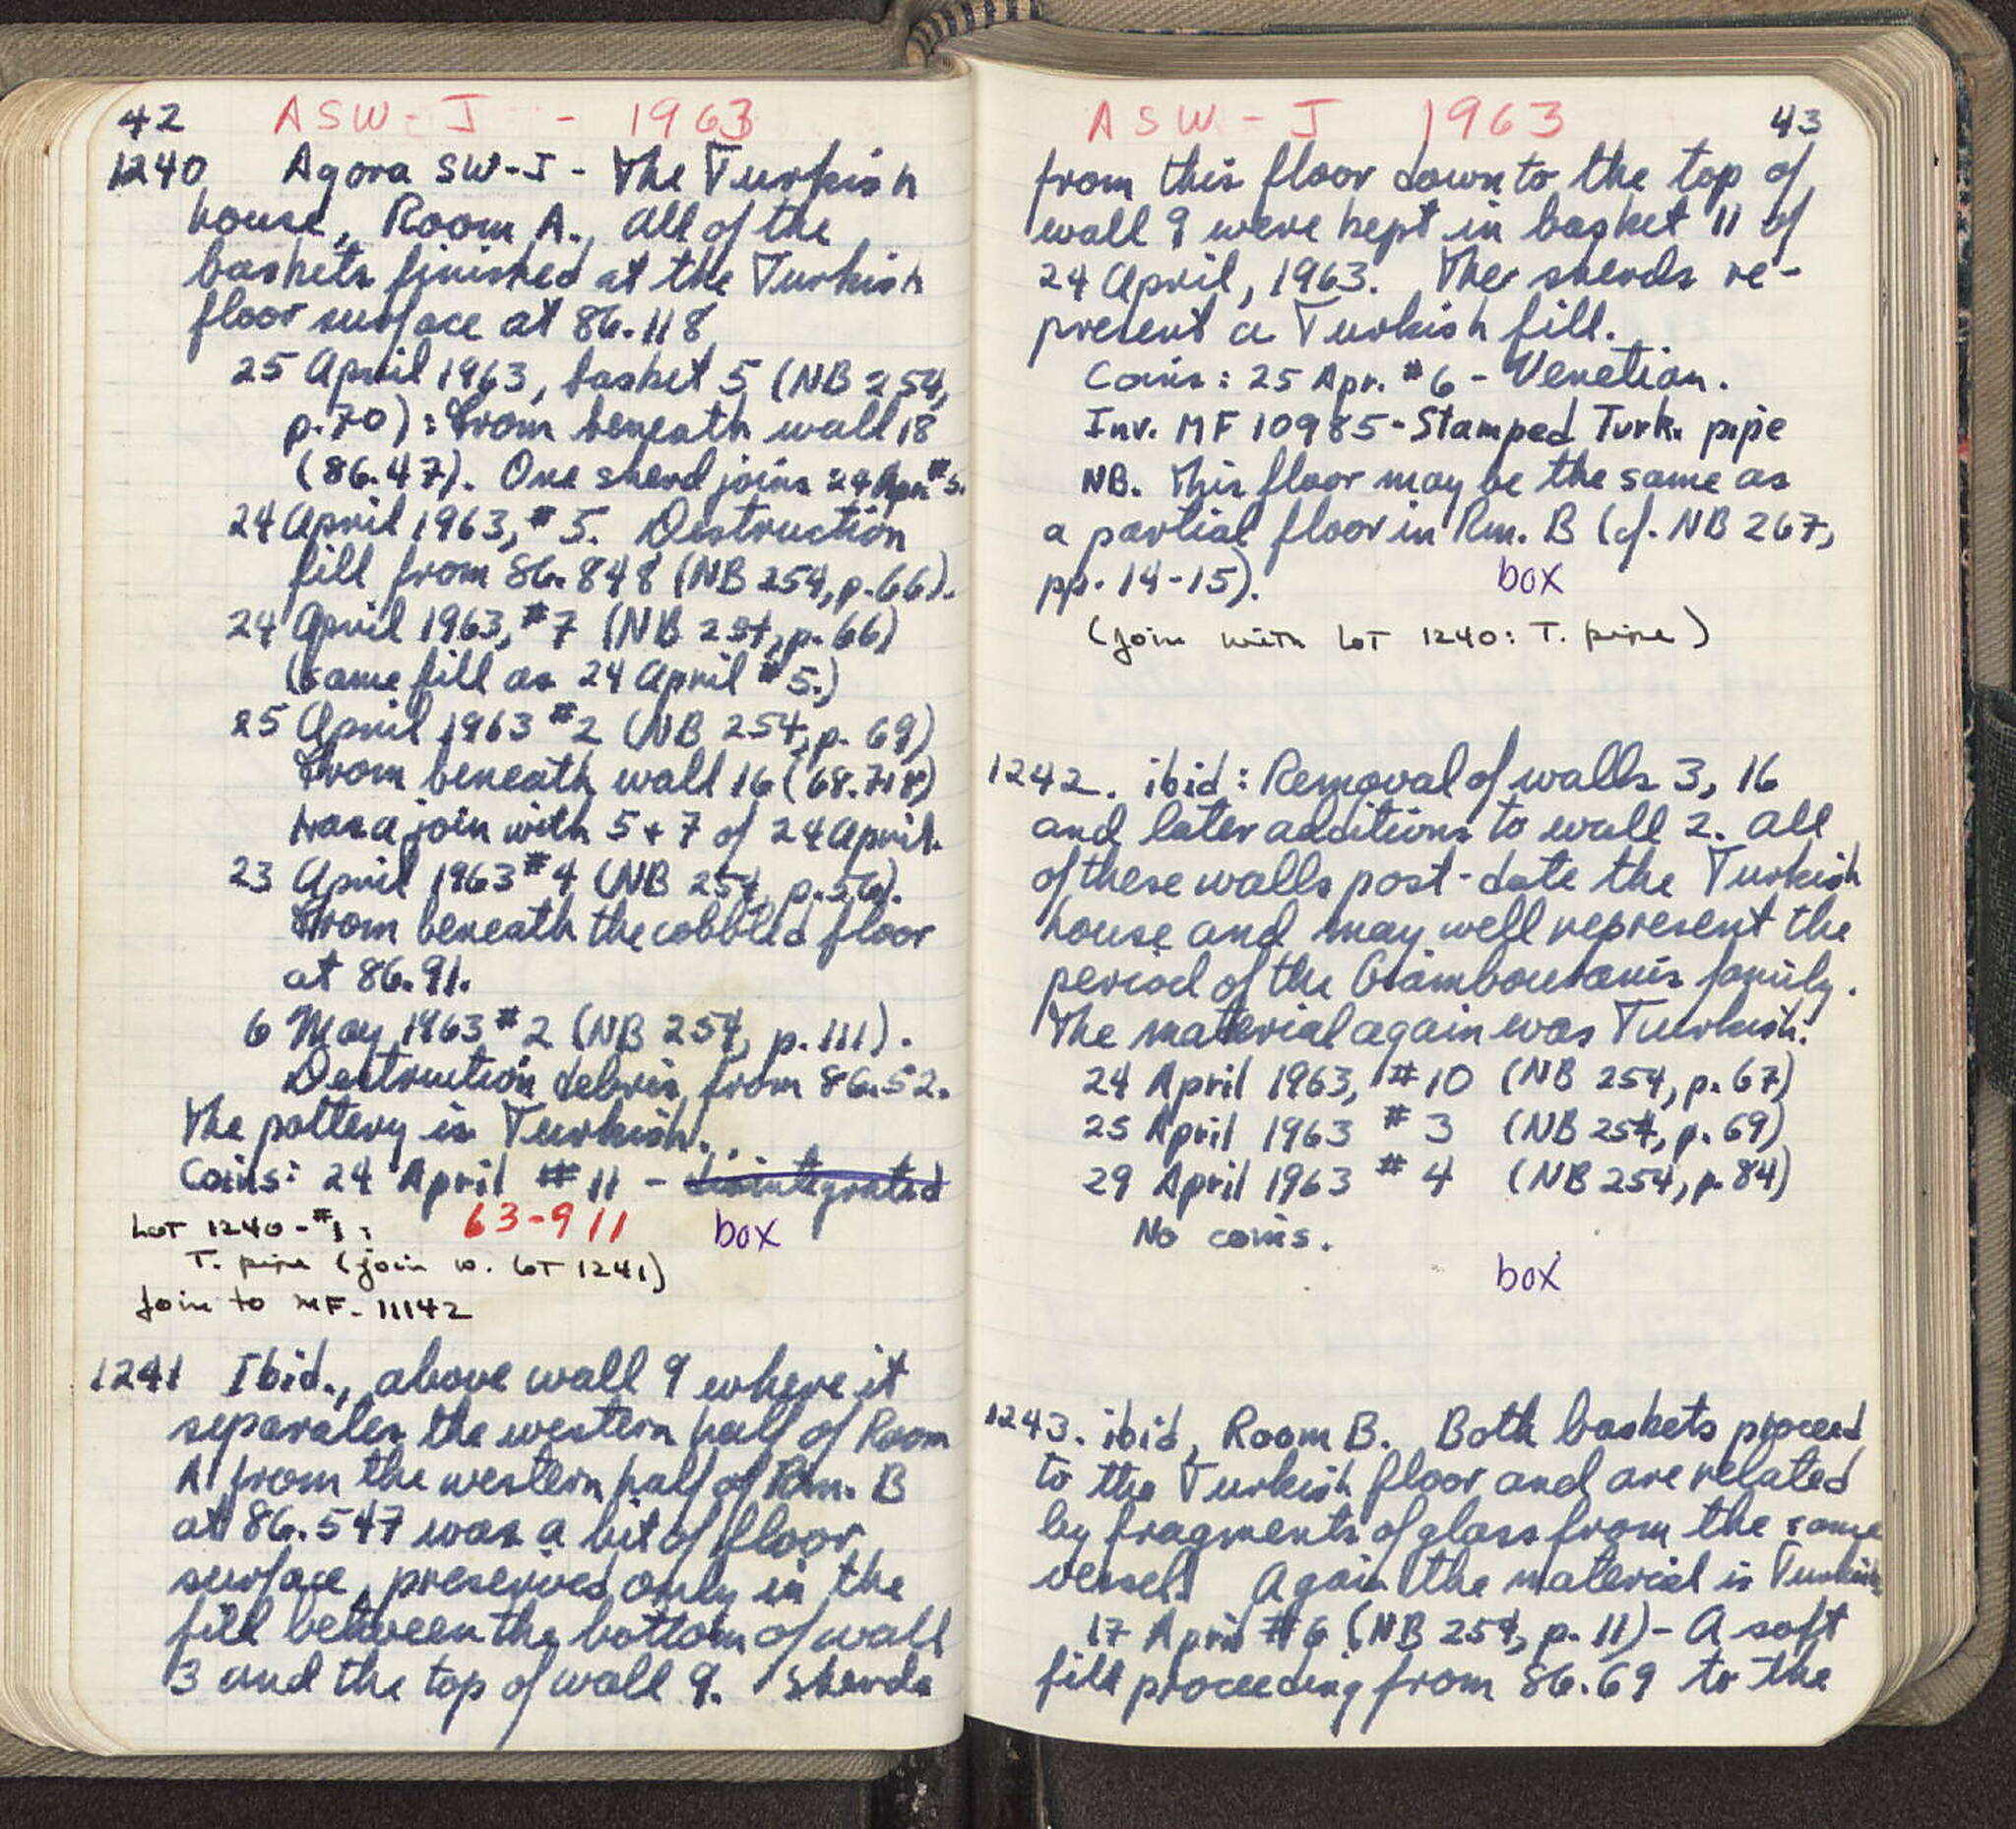 42
ASW-J - 1963
1240 Agora SW-J - The Turkish
house, Room A., All of the
baskets finished at the Turkish
floor surface at 86.118
25 April 1963, basket 5 (NB 254,
p.70): From beneath wall 18
(86.47). One sherd joins 24 Apr. #5.
24 April 1963, #5. Destruction
fill from 86.848 (NB 254, p.66).
24 April 1963, #7 (NB 254, p.66)
(same fill as 24 April #5.)
25 April 1963 #2 (NB 254, p. 69)
From beneath wall 16 (68.718)
has a join with 5 + 7 of 24 April.
23 April 1963 #4 (NB 254, p.56).
From beneath the cobbled floor
at 86.91.
6 May 1963 #2 (NB 254, p.111).
Destruction debris from 86.52.
The pottery is Turkish.
Coins: 24 April #11 - disintegrated
Lot 1240-#1: 63-911 box
T. pipe (join w. lot 1241)
Join to MF-11142
1241 Ibid., above wall 9 where it
separates the western half of Room
A from the western half of Rm. B
at 86.547 was a bit of floor
surface, preserved only in the
fill between the bottom of wall
3 and the top of wall 9. Sherds
ASW-J 1963
43
from this floor down to the top of
wall 9 were kept in basket 11 of
24 April, 1963. The sherds re-
present a Turkish fill.
Coins: 25 Apr. #6 - Venetian.
Inv. MF 10985-Stamped Turk. pipe
NB. This floor may be the same as
a partial floor in Rm. B (cf. NB 267,
pp. 14-15). box
(join with lot 1240: T. pipe)
1242. ibid: Removal of walls 3, 16
and later additions to wall 2. All
of these walls post-date the Turkish
house and may well represent the
period of the family.
The material again was Turkish:
24 April 1963, #10 (NB 254, p.67)
25 April 1963 #3 (NB 254, p.69)
29 April 1963 #4 (NB 254, p.84)
No coins.
box
1243. ibid, Room B. Both baskets proceed
to the Turkish floor and are related
by fragments of glass from the same
vessel. Again the material is Turkish
17 April #6 (NB 254, p. 11) - A soft
fill proceeding from 86.69 to the